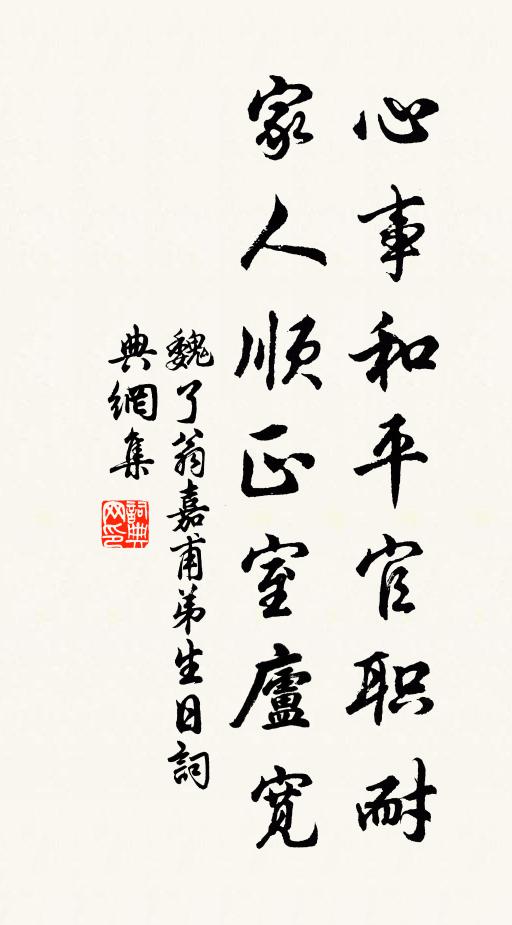 心事和平官职耐
家人顺正室廬寬
魏了翁嘉甫弟生日詞
典網集
詞典网印